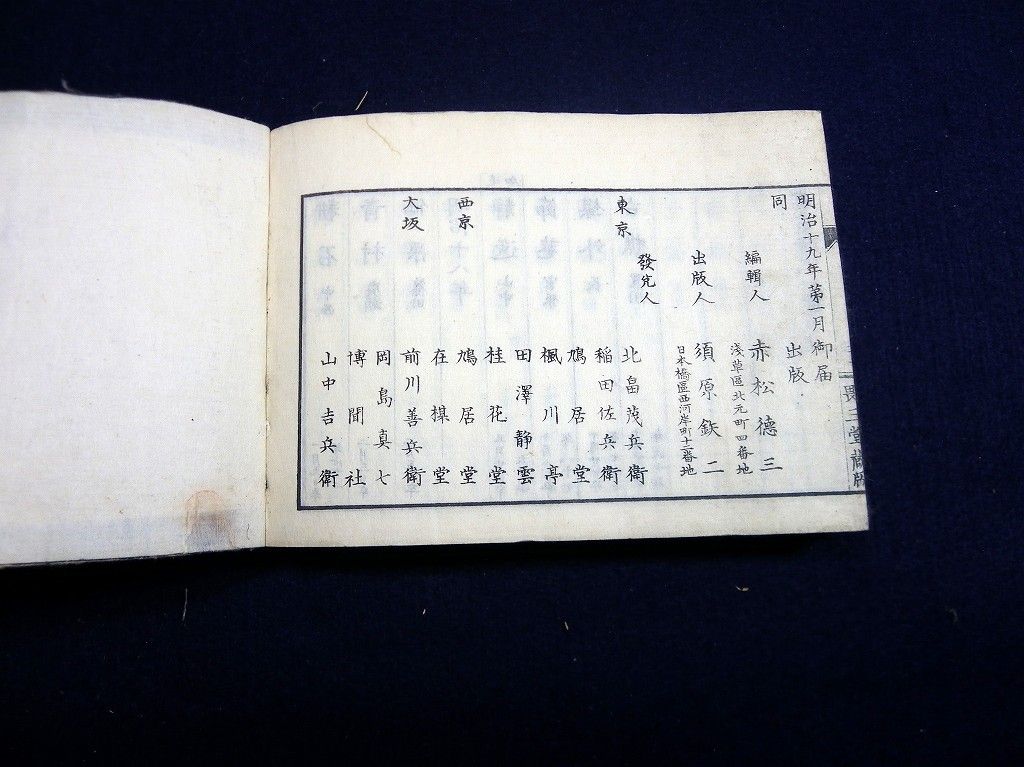 明治十九年第一月御届
同 出版
編輯人 赤松德三
淺草區北元町四番地
出版人 須原鉄二
日本橋區西河岸町十一番地
發兌人
東京 北畠茂兵衛
稲田佐兵衛
鳩居堂
楓川亭
田澤静雲
桂花堂
西京 鳩居堂
在楳堂
大坂 前川善兵衛
岡島真七
博聞社
山中吉兵衛
三堂蔵版